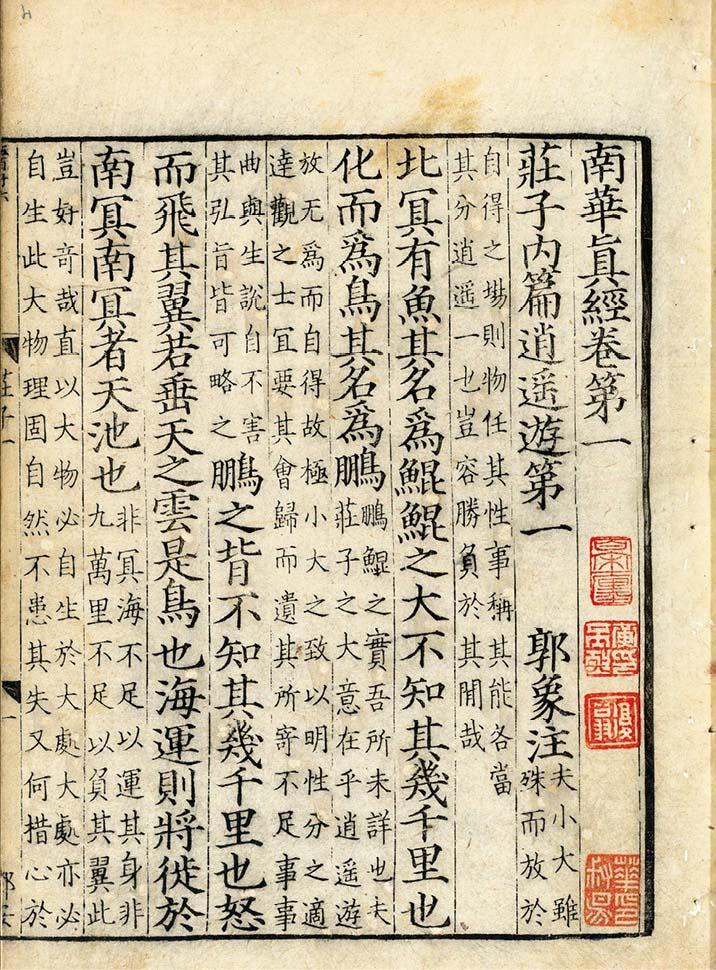 南華眞經卷第一
莊子内篇逍遥遊第一
郭象注
夫小大雖
殊而放於
自得之場則物任其性事稱其能各當
其分逍遥一也豈容勝負於其閒哉
北冥有魚其名爲鯤鯤之大不知其幾千里也
化而爲鳥其名爲鵬
鵬鯤之實吾所未詳也夫
莊子之大意在乎逍遥遊
放无爲而自得故極小大之致以明性分之適
達觀之士冝要其會歸而遺其所寄不足事事
曲與生說自不害
其弘旨皆可略之
鵬之背不知其幾千里也怒
而飛其翼若垂天之雲是鳥也海運則將徙於
南冥南冥者天池也
非冥海不足以運其身非
九萬里不足以負其翼此
豈好竒哉直以大物必自生於大處大處亦必
自生此大物理固自然不患其失又何措心於
莊子一
一